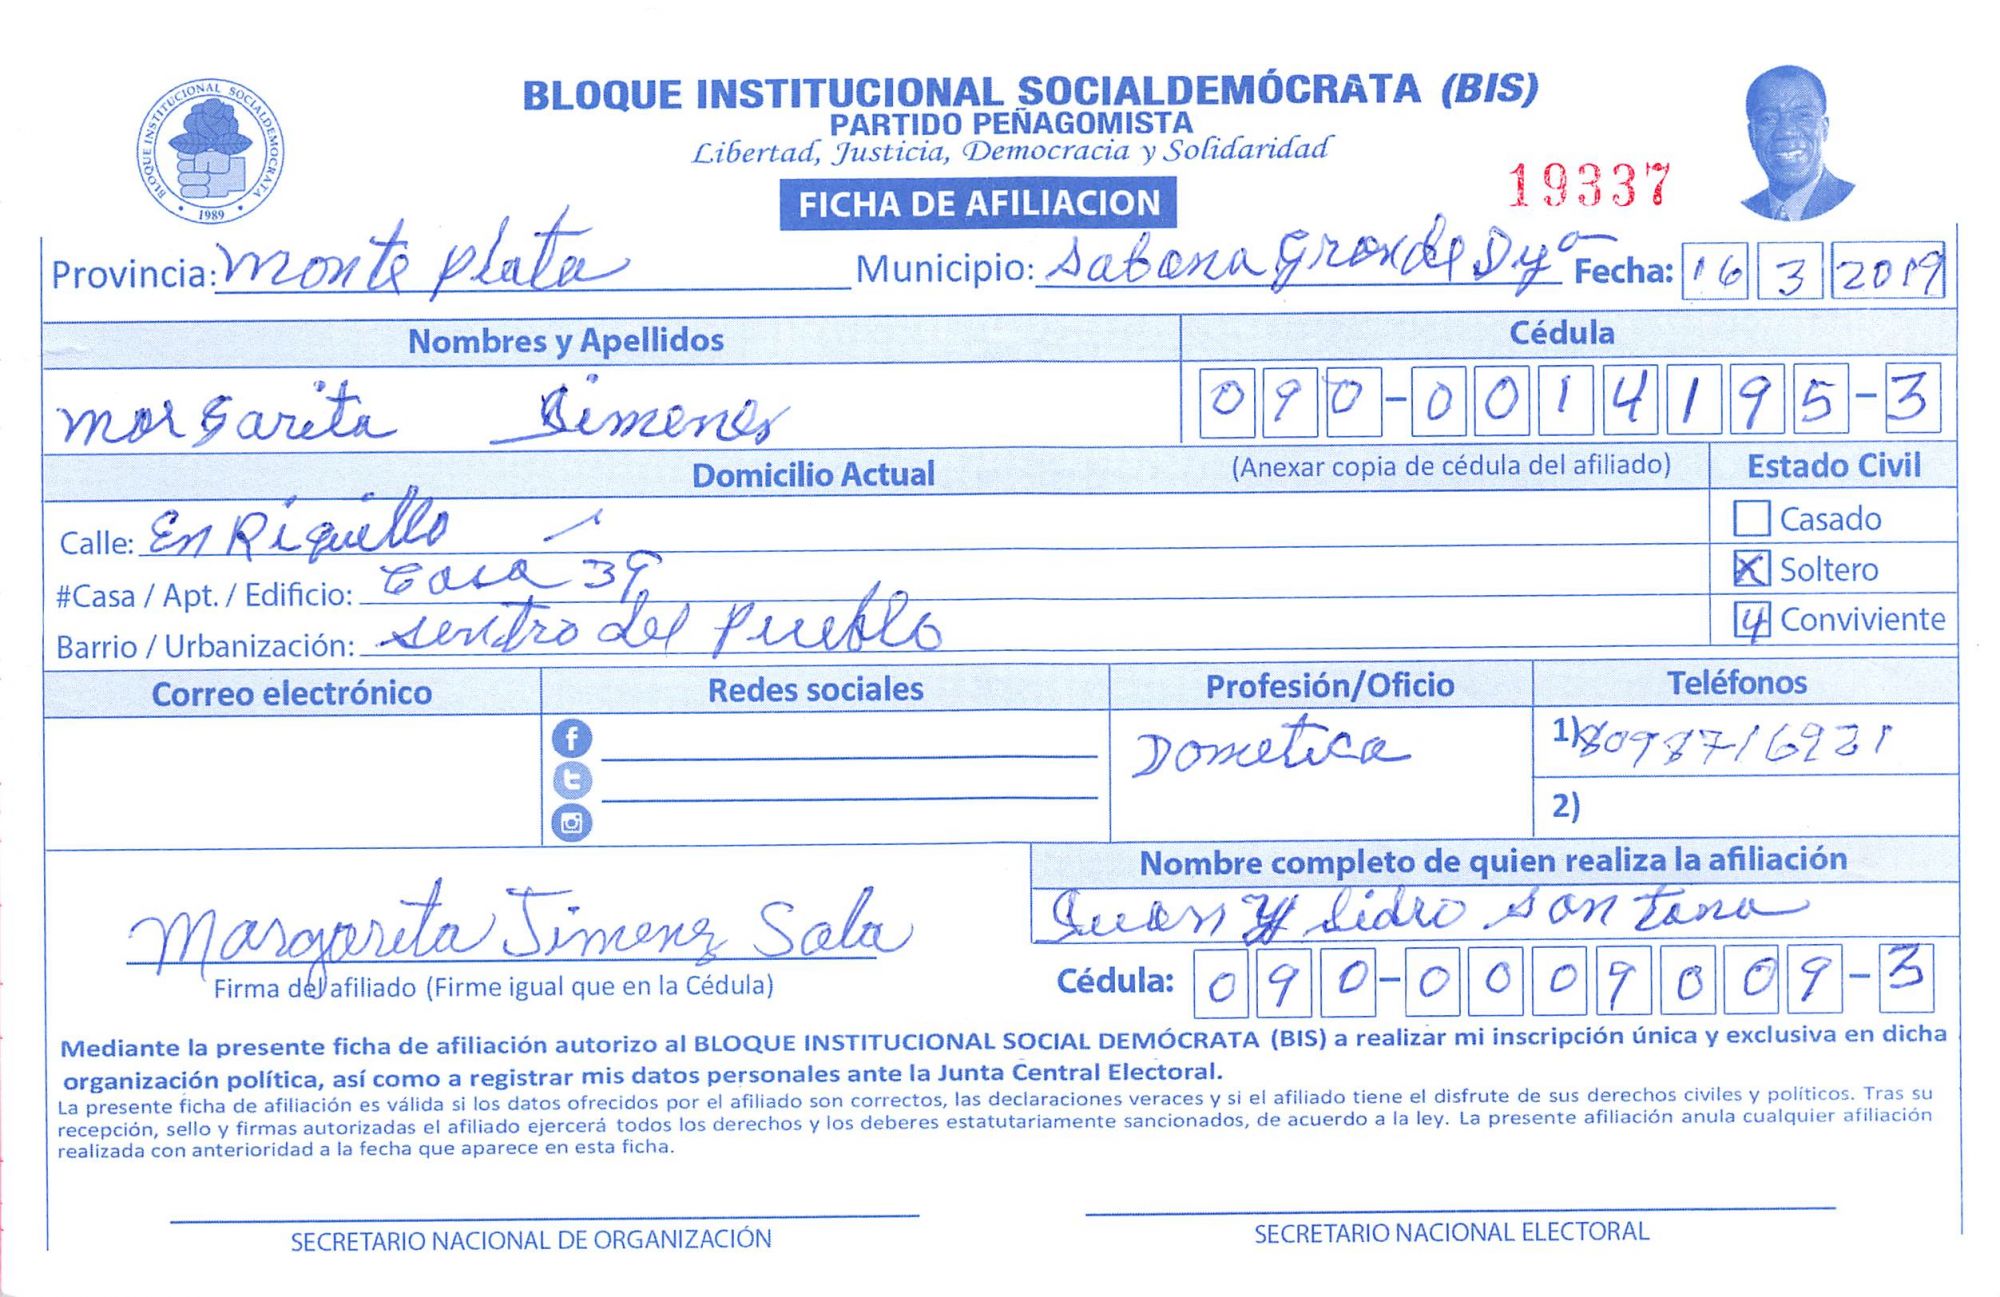 BLOQUE INSTITUCIONAL SOCIALDEMOCRATA
1989
BLOQUE INSTITUCIONAL SOCIALDEMÓCRATA (BIS)
PARTIDO PEÑAGOMISTA
Libertad, Justicia, Democracia y Solidaridad
19337
FICHA DE AFILIACION
Provincia: Monte Plata Municipio: Sabana Grande Dya Fecha: 16 3 2019
Nombres y Apellidos Cédula
Margarita Jimenes 090-0014195-3
Domicilio Actual (Anexar copia de cédula del afiliado) Estado Civil
Calle: EnRiquillo Casado
#Casa / Apt. / Edificio: Casa 39 X Soltero
Barrio / Urbanización: sentro del Pueblo 4 Conviviente
Correo electrónico Redes sociales Profesión/Oficio Teléfonos
Dometica 1) 8098716921
2)
Nombre completo de quien realiza la afiliación
Juan Ysidro Santana
Margarita Jimenez Sala
Firma del afiliado (Firme igual que en la Cédula) Cédula: 090-0009009-3
Mediante la presente ficha de afiliación autorizo al BLOQUE INSTITUCIONAL SOCIAL DEMÓCRATA (BIS) a realizar mi inscripción única y exclusiva en dicha
organización política, así como a registrar mis datos personales ante la Junta Central Electoral.
La presente ficha de afiliación es válida si los datos ofrecidos por el afiliado son correctos, las declaraciones veraces y si el afiliado tiene el disfrute de sus derechos civiles y políticos. Tras su
recepción, sello y firmas autorizadas el afiliado ejercerá todos los derechos y los deberes estatutariamente sancionados, de acuerdo a la ley. La presente afiliación anula cualquier afiliación
realizada con anterioridad a la fecha que aparece en esta ficha.
SECRETARIO NACIONAL DE ORGANIZACIÓN SECRETARIO NACIONAL ELECTORAL